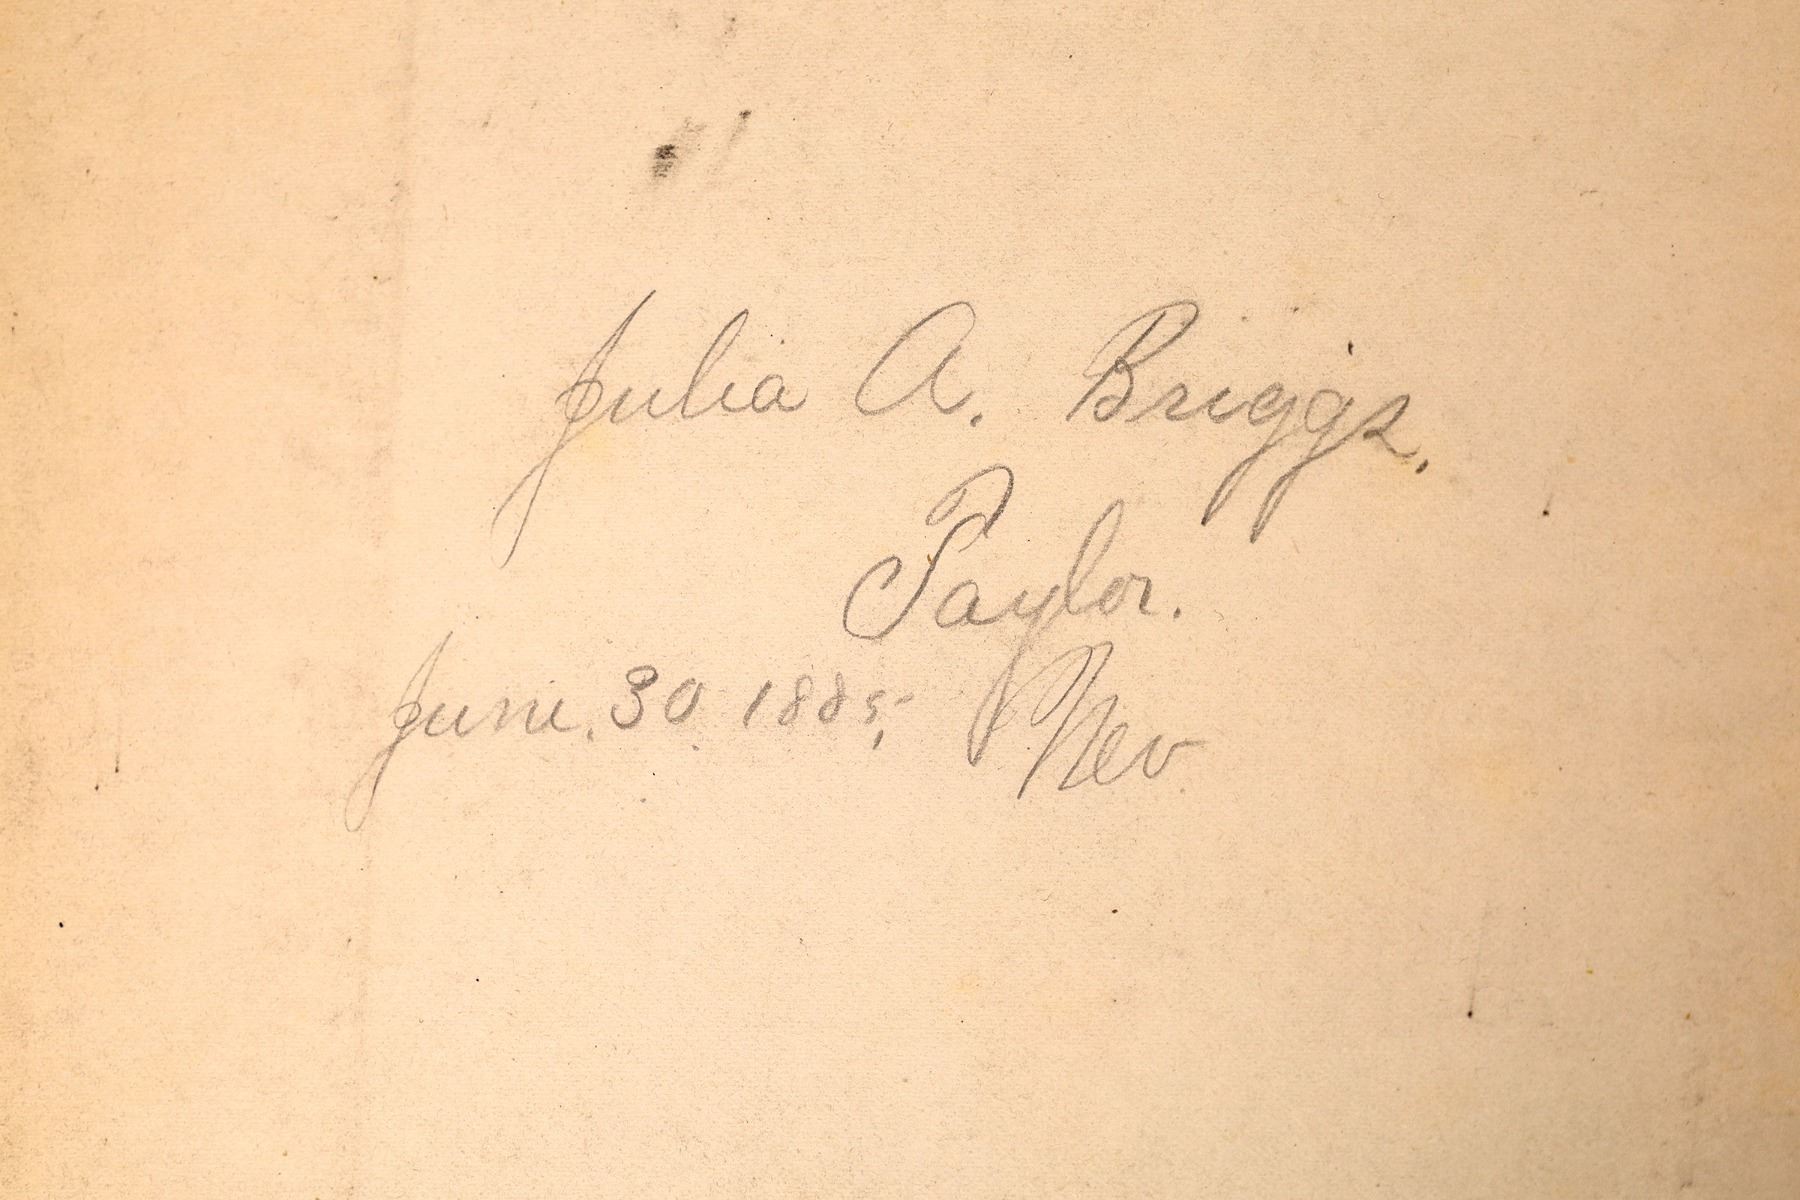 Julia A. Briggs.
Taylor.
June. 30 1885, Nev